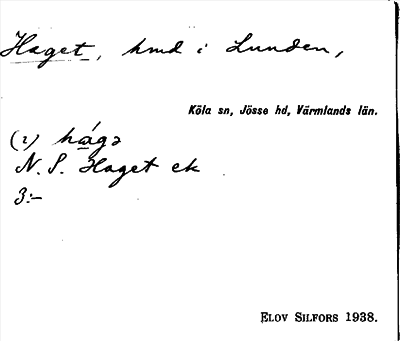 Haget, hmd i Lunden,
Köla sn, Jösse hd, Värmlands län.
(2) hágə
N. S. Haget ek
3:-
ELOV SILFORS 1938.